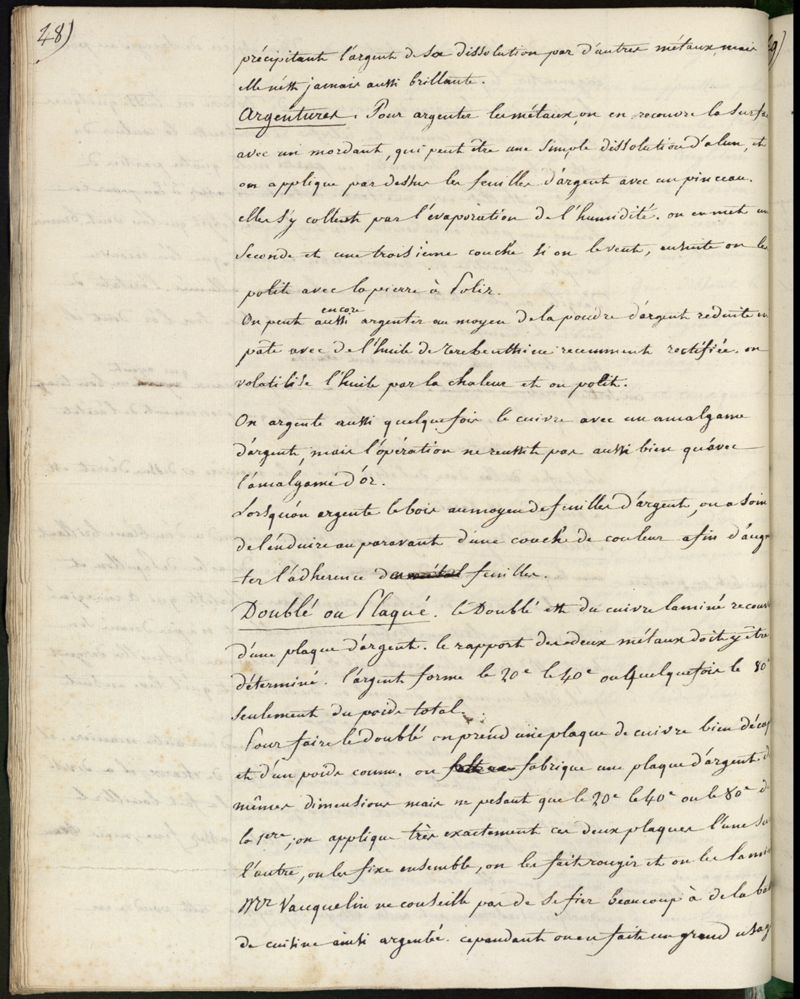 48)
précipitant l'argent de sa dissolution par d'autres métaux, mais
elle n'est jamais aussi brillante.
Argentures. Pour argenter les métaux, on en recouvre la surfa
avec un mordant, qui peut être une simple dissolution d'alun, et
on applique par dessus les feuilles d'argent avec un pinceau.
elles s'y collent par l'évaporation de l'humidité. on en met un
seconde et une troisième couche si on le veut, ensuite on les
polit avec la pierre à Polir.
encore
On peut aussi argenter au moyen de la poudre d'argent reduite en
pâte avec de l'huile de Terebenthine recemment rectifiée. on
volatilise l'huile par la chaleur et on polit.
On argente aussi quelquefois le cuivre avec un amalgame
d'argent, mais l'opération ne reussit pas aussi bien qu'avec
l'amalgame d'or.
Lorsqu'on argente le bois au moyen de feuilles d'argent, on a soin
de l'enduire au paravant d'une couche de couleur afin d'aug
ter l'adherence des métal feuilles.
Doublé ou Plaqué. Le Doublé est du cuivre laminé recouv
d'une plaque d'argent. le rapport des deux métaux doit y être
déterminé. l'argent forme le 20e le 40e ou quelquefois le 80e
seulement du poids total.
Pour faire le doublé on prend une plaque de cuivre bien décap
et d'un poids connu. on fabrique une plaque d'argent d
mêmes dimensions mais ne pesant que le 20e le 40e ou le 80e d
la 1ere; on applique très exactement ces deux plaques l'une su
l'autre, on les fixe ensemble, on les fait rougir et on les lami
Mr Vauquelin ne conseille pas de se fier beaucoup à de la bat
de cuisine ainsi argentée. cependant on en fait un grand usag